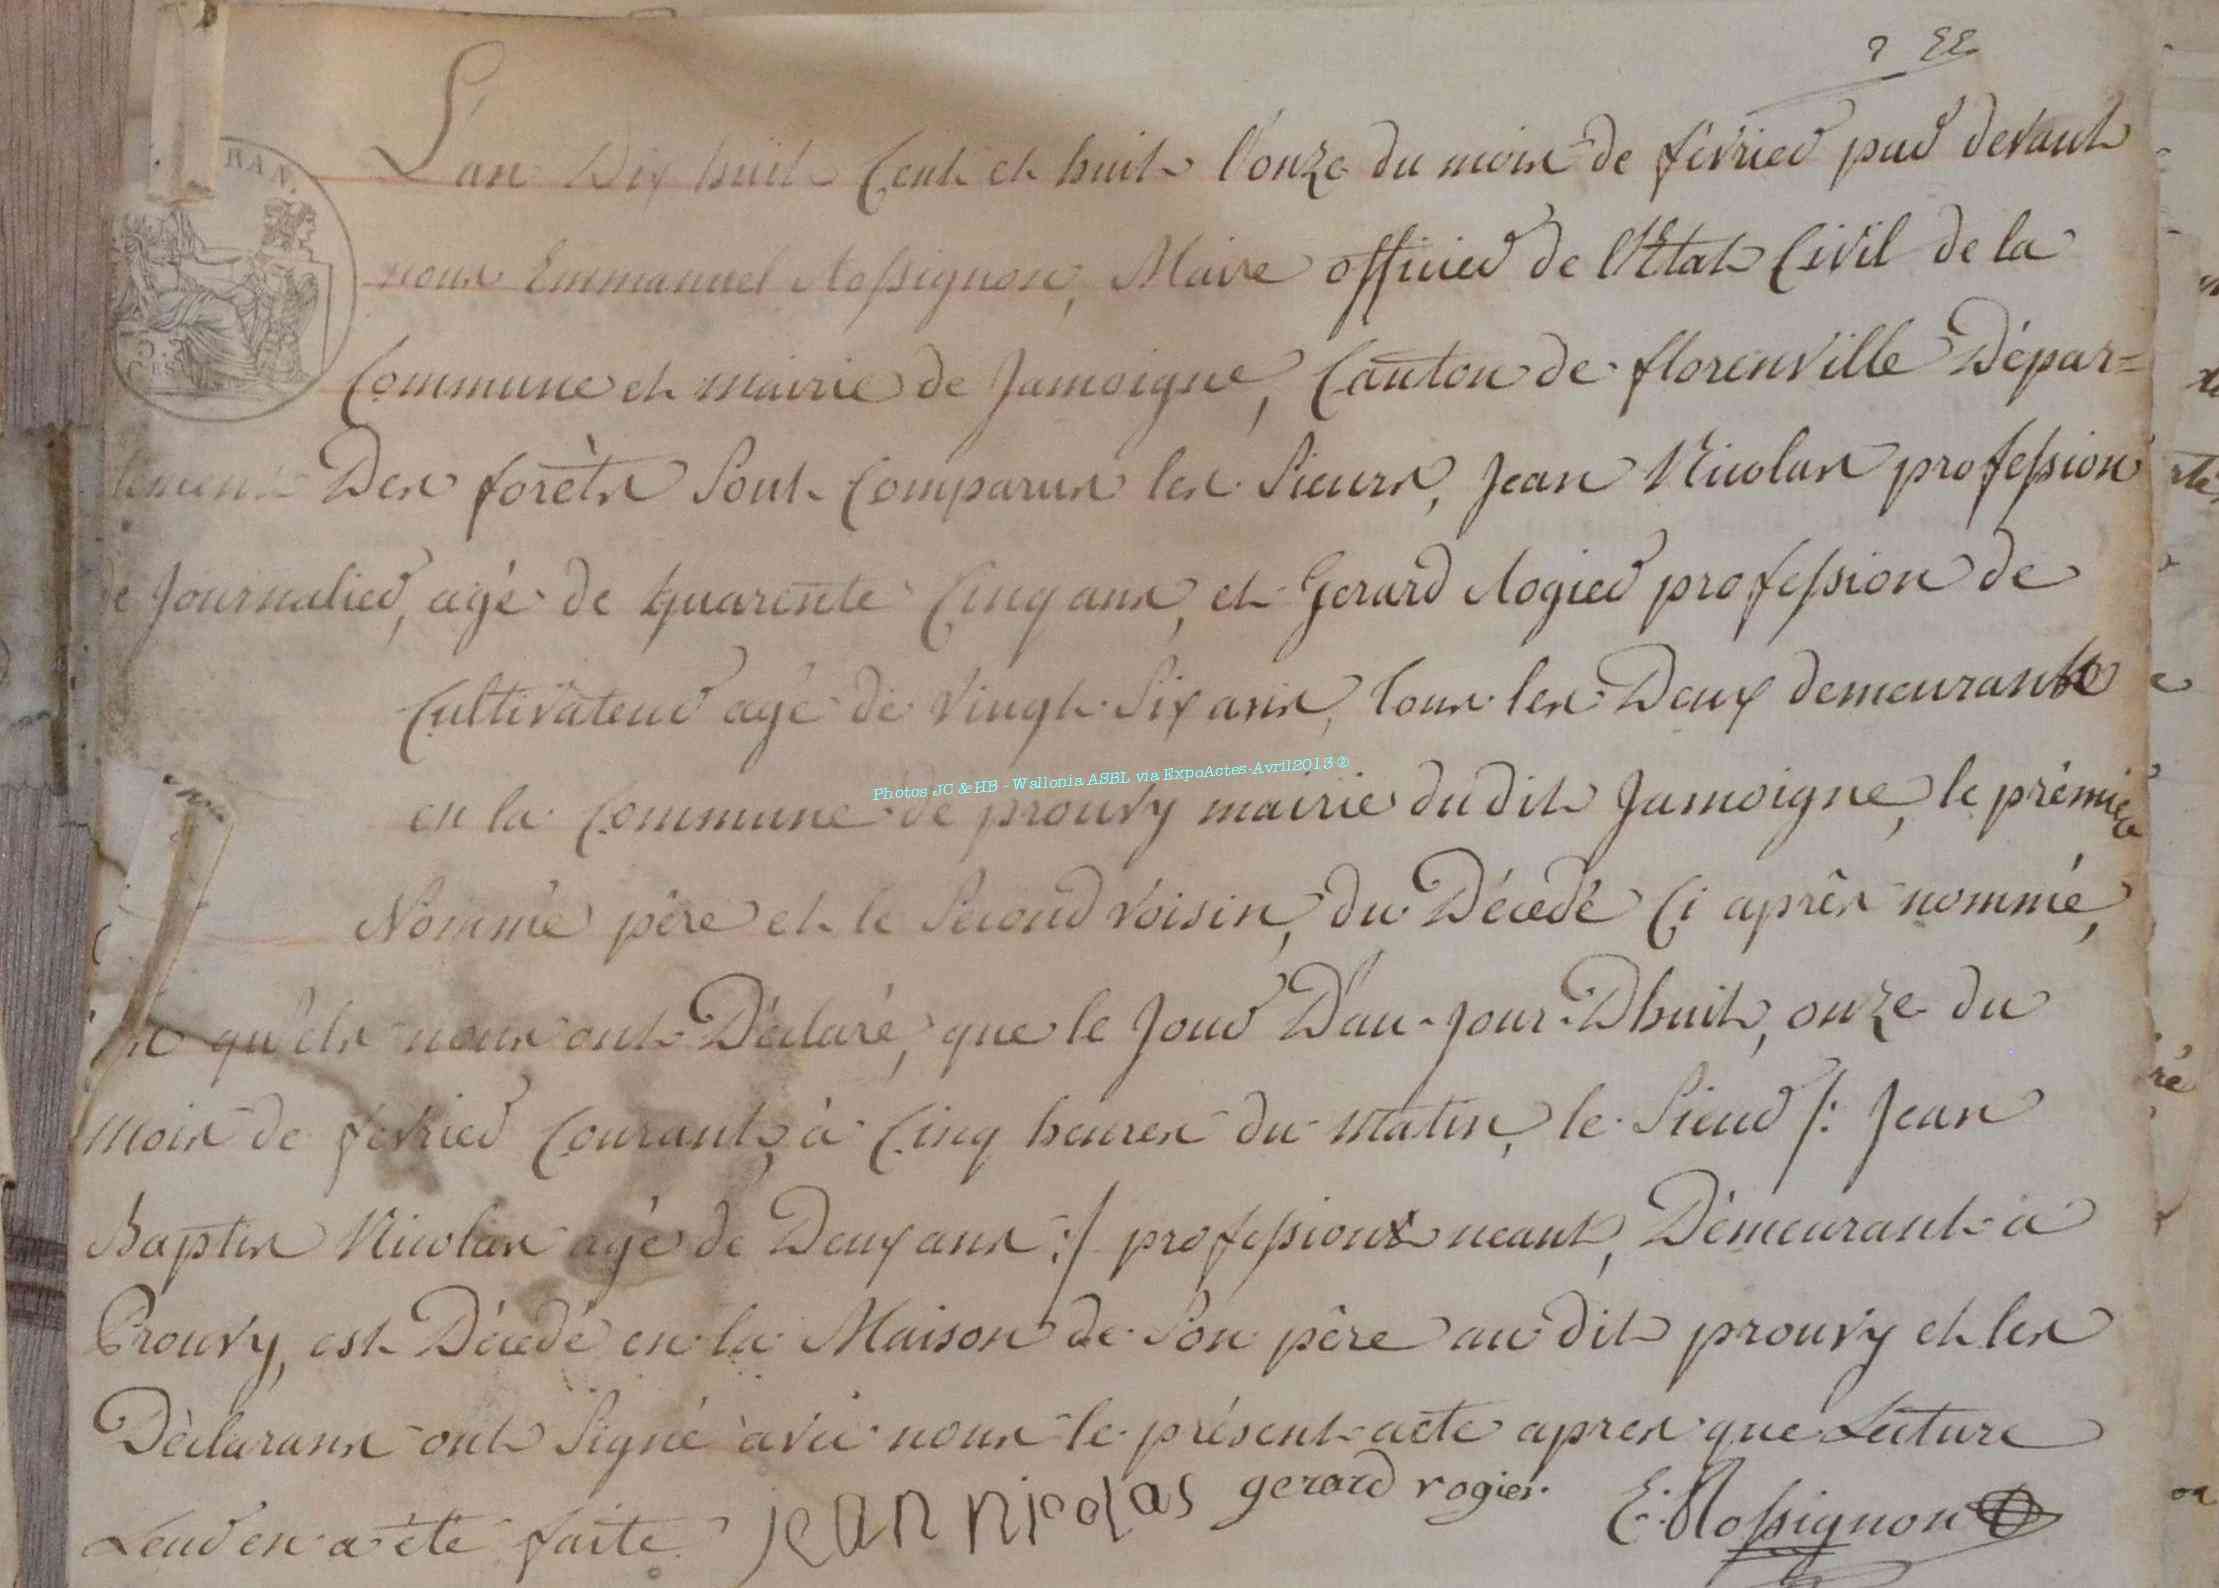 L'an Dix huit Cent et huit l'onze du mois de février par devant
nous Emmanuel Rossignon, Maire officier de l'Etat Civil de la
Commune et mairie de Jamoigne, Canton de florenville Dépar=
tement Des forèts Sont Comparus les Sieurs, Jean Nicolas profession
de Journalier, agé de quarente Cinq ans, et Gerard Rogier profession de
Cultivateur agé de Vingt Six ans, tous les Deux demeurant
en la Commune de prouvy mairie du dit Jamoigne, le prémier
Nommé père et le Second Voisin, du Décedé Ci après nommé,
qu'els nous ont Déclaré, que le Jour D'au-jour-Dhuit, onze du
mois de février Courant, à Cinq heures du matin, le Sieur /: Jean
Baptis Nicolas agé de Deux ans :/ profession neant, Démeurant à
Prouvy, est Décedé en la Maison de Son père au dit prouvy et les
Déclarans ont Signé avec nous le présent acte apres que Lecture
Leur en a été faite. jean nicolas gerard rogier. E. Rossignon
RAN.
Photos JC & HB - Wallonia ASBL via ExpoActes-Avril2013 ®